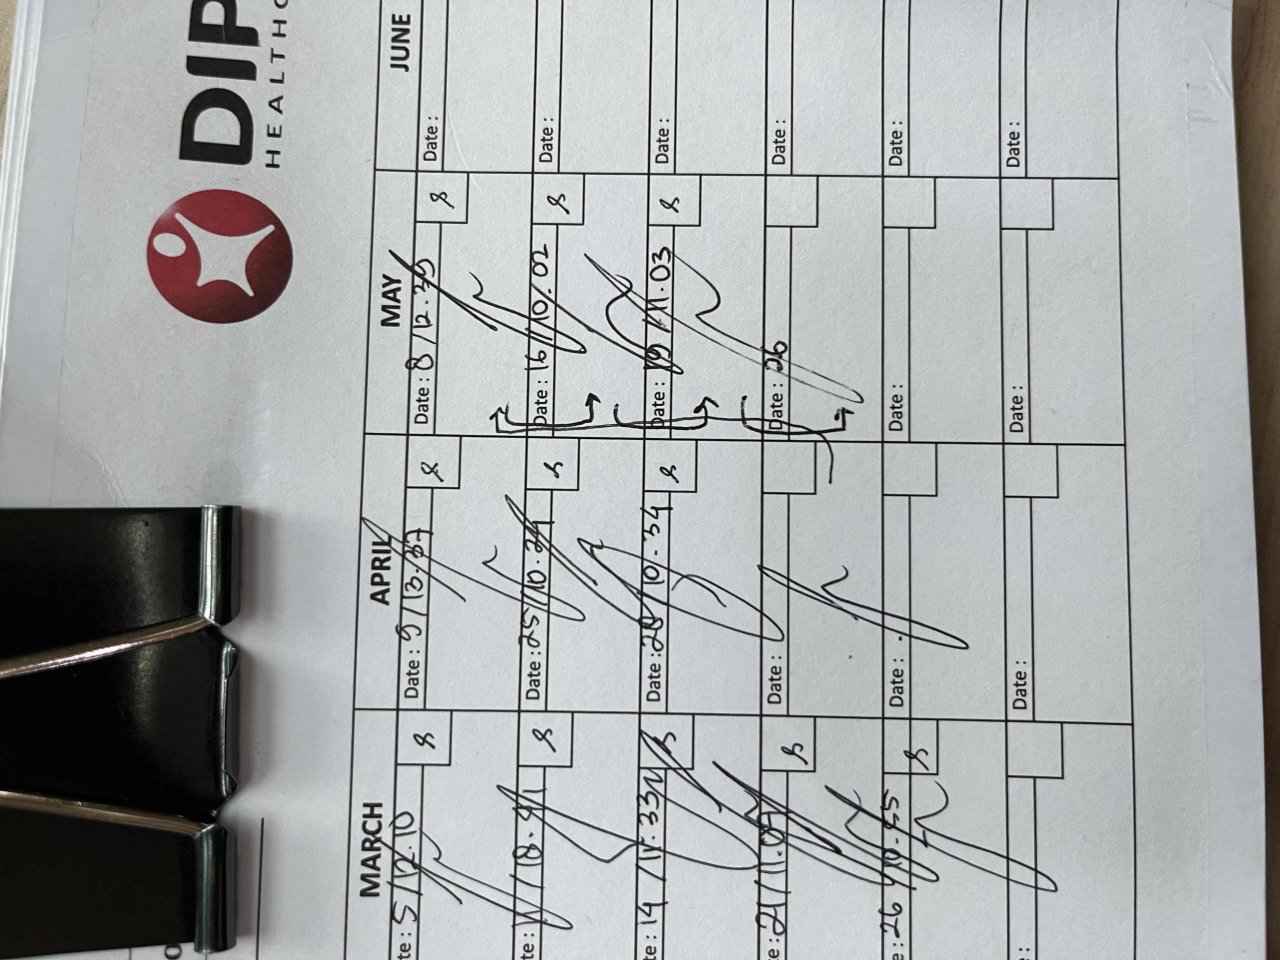 DIP
HEALTHC
MARCH APRIL MAY JUNE
te: 5/12.10 8 Date: 9/13.27 8 Date: 8/12.35 8 Date:
te: 11/18.41 8 Date: 25/10.24 8 Date: 16/10.02 8 Date:
te: 14/11.33 8 Date: 28/10.34 8 Date: 19/11.03 8 Date:
e: 21/11.07 8 Date: Date: 26 Date:
e: 26/10.55 8 Date: Date: Date:
: Date: Date: Date: